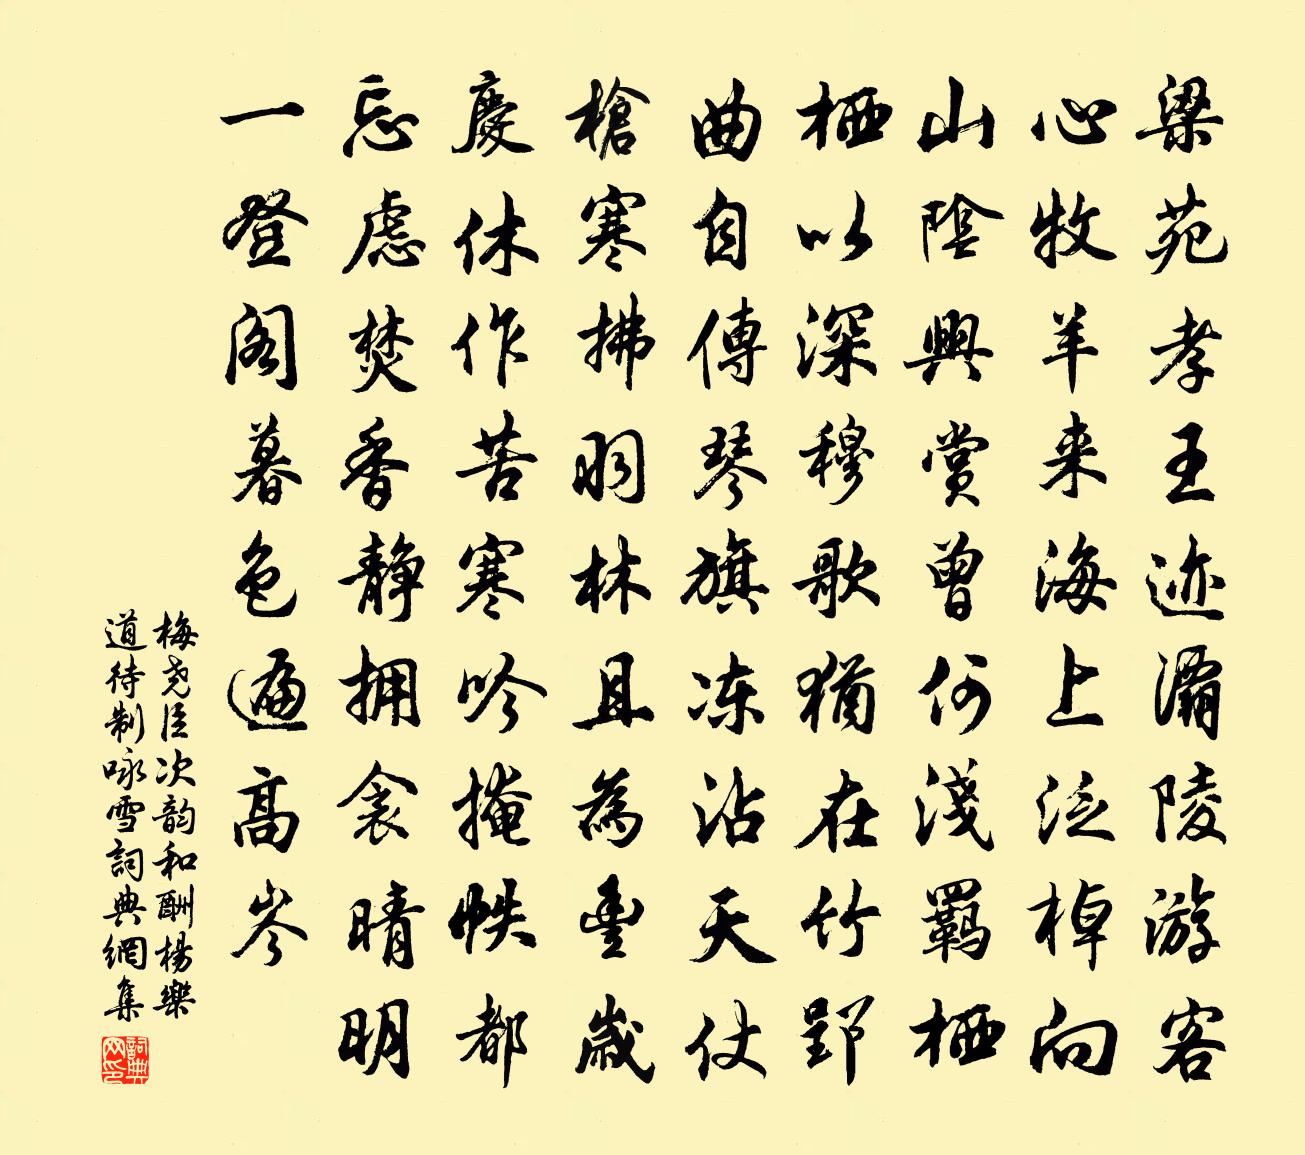 梁苑孝王迹灞陵游客
心牧羊来海上泛棹向
山陰興賞曾何淺羈栖
栖以深穆歌猶在竹郢
曲自傳琴旗冻沾天仗
槍寒拂羽林且為豊歲
慶休作苦寒吟掩帙都
忘慮焚香静拥衾晴明
一登阁暮色遍高岑
梅尧臣次韵和酬楊樂
道待制咏雪詞典網集
詞典网印